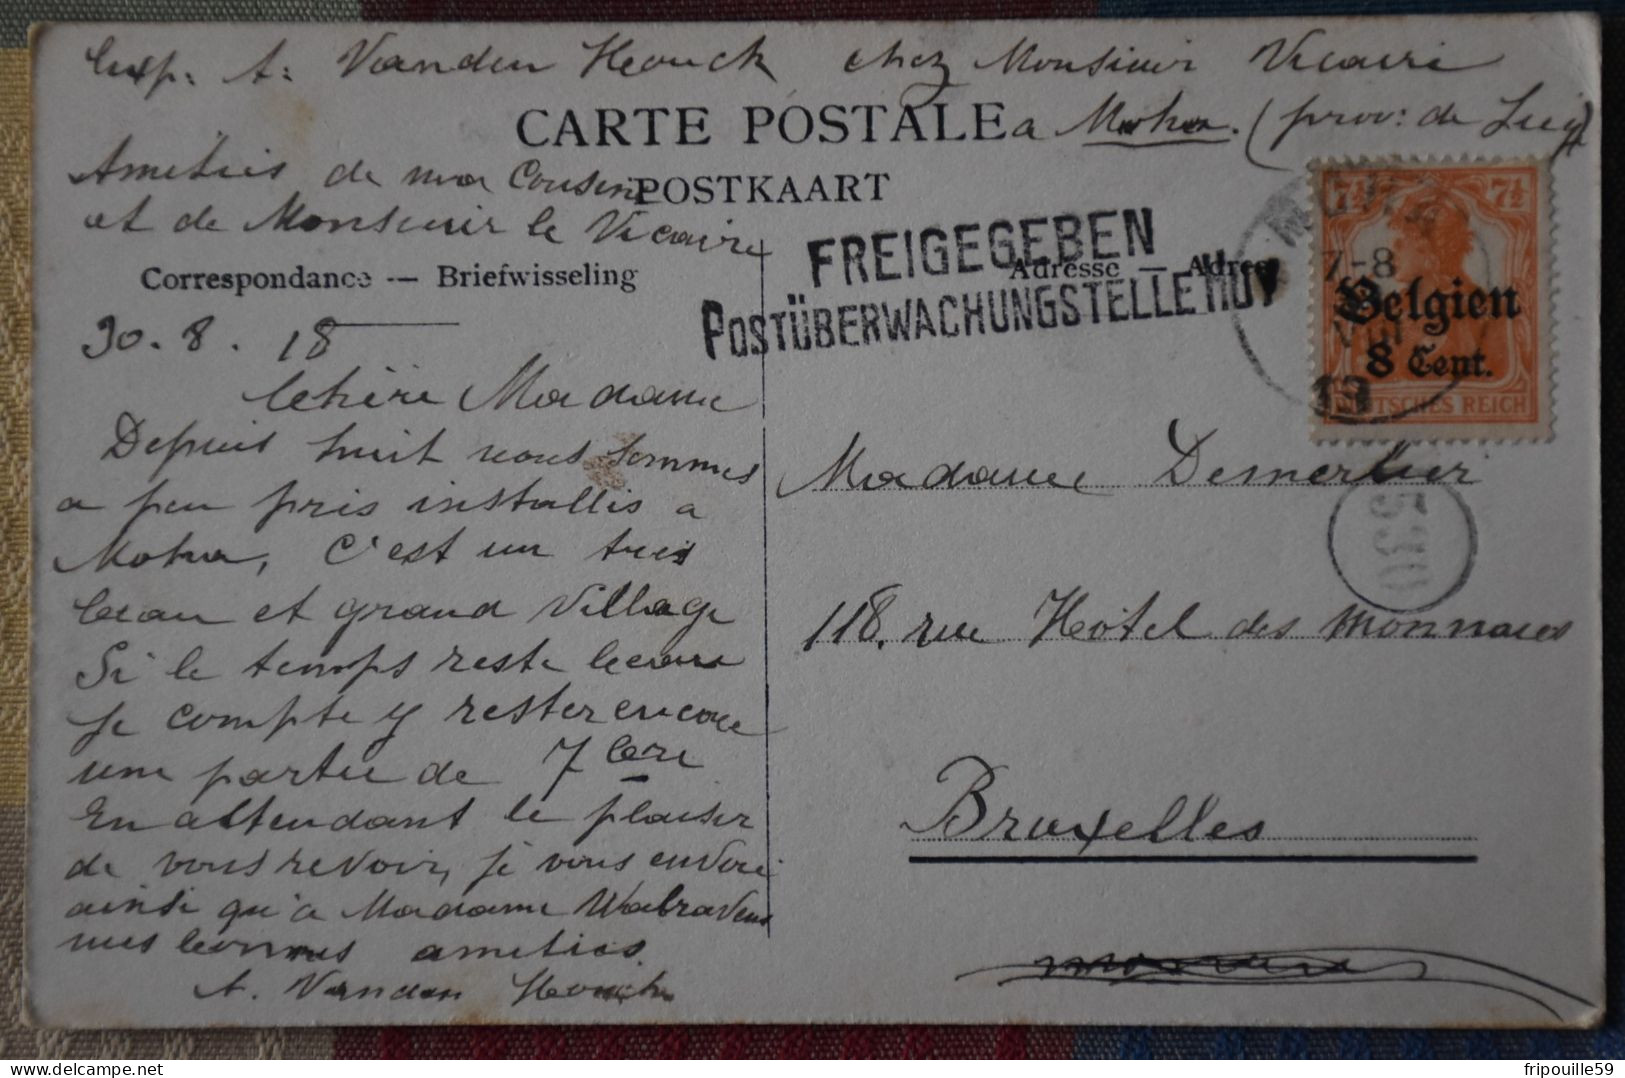 Exp. A. Vanden Heouck chez Monsieur Vicaire
CARTE POSTALE a Moha. (prov: de Lieg)
Amitiés de ma Cousine
POSTKAART
et de Monsieur le Vicaire
FREIGEGEBEN
POSTÜBERWACHUNGSTELLE HUY
Correspondance — Briefwisseling
Adresse — Adres
7½ 7½
7-8
Belgien
8 Cent.
DEUTSCHES REICH
30. 8. 18
Chère Madame
Depuis huit nous sommes
a peu pris installis a
Moha, C'est un tris
beau et grand Village
Si le temps reste beau
je compte y rester encore
une partie de 7 bre
En attendant le plaisir
de vous revoir, je vous envoie
ainsi qu'a Madame Walravens
mes bonnes amitiés
A. Vanden Heouck
Madame Demertier
118. rue Hôtel des Monnaies
Bruxelles
fripouille59